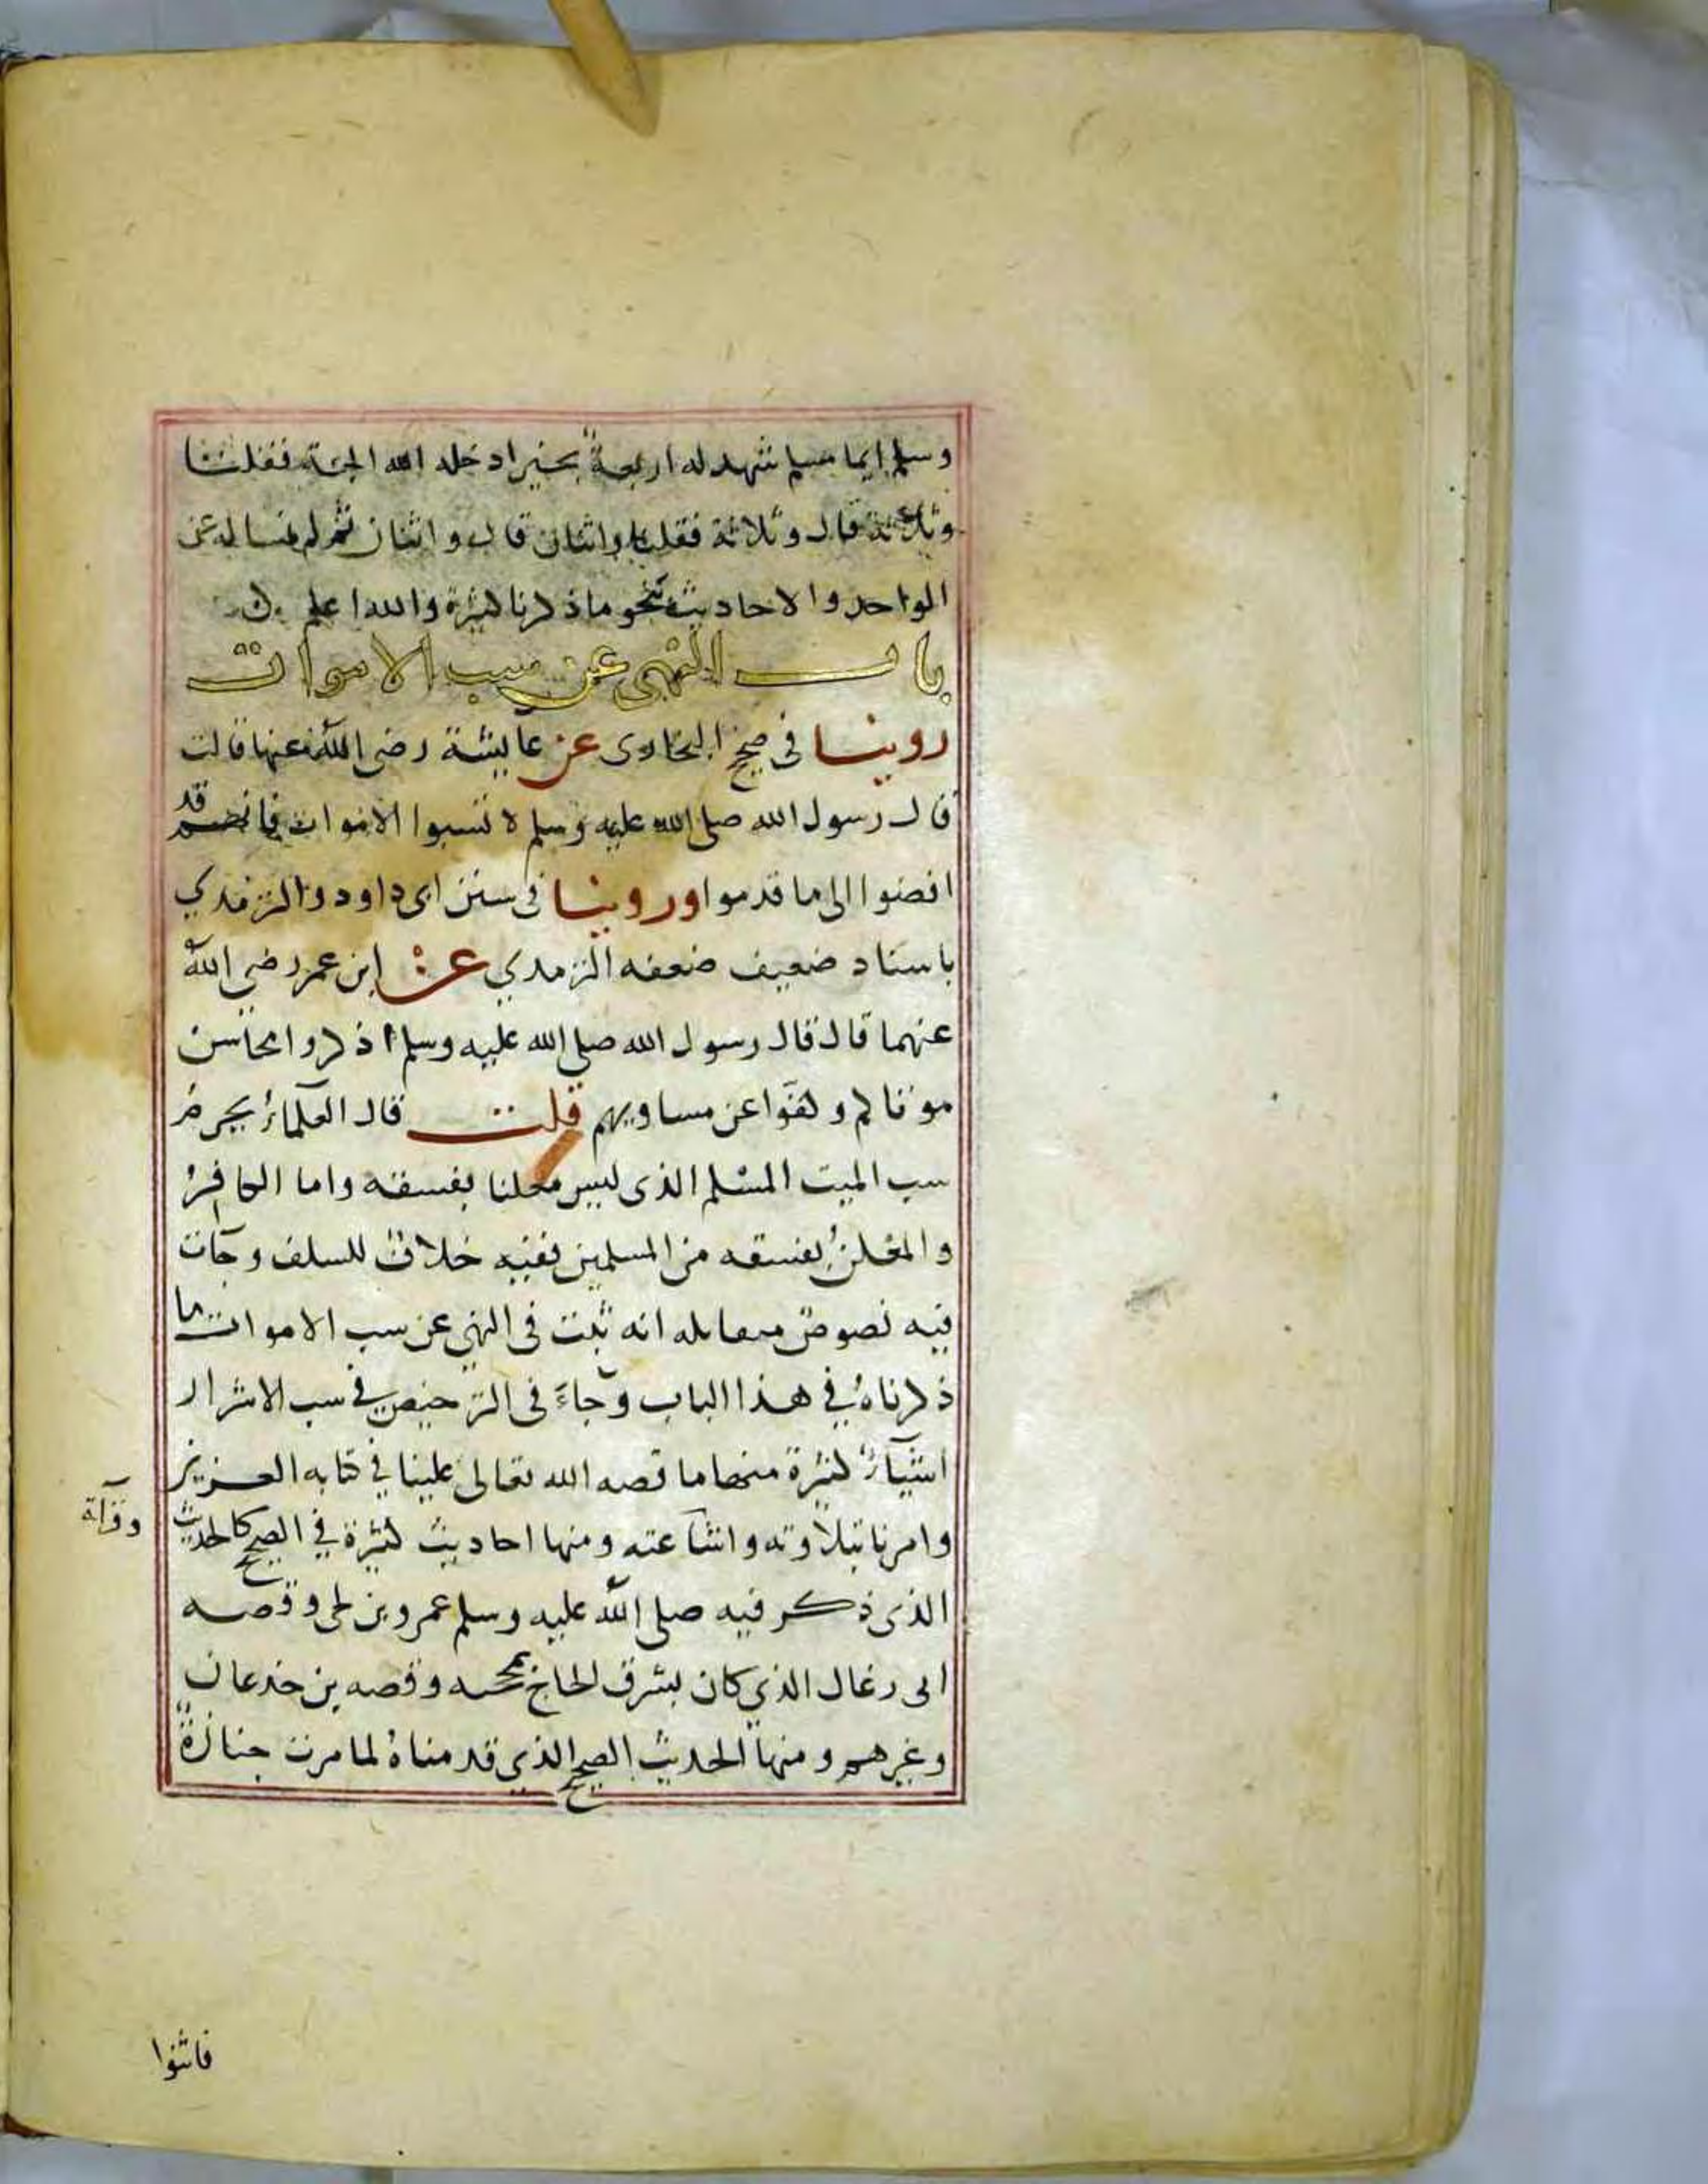 وسلم ايما مسلم شهد له اربعة بخير ادخله الله الجنة فقلنا
وثلاثة قال وثلاثة فقلنا واثنان قال واثنان ثم لم نساله عن
الواحد والاحاديث بنحو ما ذكرنا كثيرة والله اعلم
باب النهى عن سب الاموات
روينا فى صحيح البخارى عن عايشة رضى الله عنها قالت
قال رسول الله صلى الله عليه وسلم لا تسبوا الاموات فانهم قد
افضوا الى ما قدموا وروينا فى سنن ابى داود والترمذي
باسناد ضعيف ضعفه الترمذي عن ابن عمر رضي الله
عنهما قال قال رسول الله صلى الله عليه وسلم اذكروا محاسن
موتاكم وكفوا عن مساويهم قلت قال العلماء يحرم
سب الميت المسلم الذى ليس معلنا بفسقه واما الكافر
والمعلن بفسقه من المسلمين ففيه خلاف للسلف وجآت
فيه نصوص انه ثبت فى النهى عن سب الاموات ما
ذكرناه في هذا الباب وجاء فى الترخيص في سب الاشرار
اشيآء كثيرة منها ما قصه الله تعالى علينا في كتابه العزيز
وامرنا بتلاوته واشاعته ومنها احاديث كثيرة في الصحيح كالحديث
وقرآة
الذى ذكر فيه صلى الله عليه وسلم عمرو بن لحى وقصه
ابى رغال الذي كان يسرق الحاج بمحجنه وقصه بن جدعان
وغيرهم ومنها الحديث الصحيح الذي قدمناه لما مرت جنازة
فاثنوا